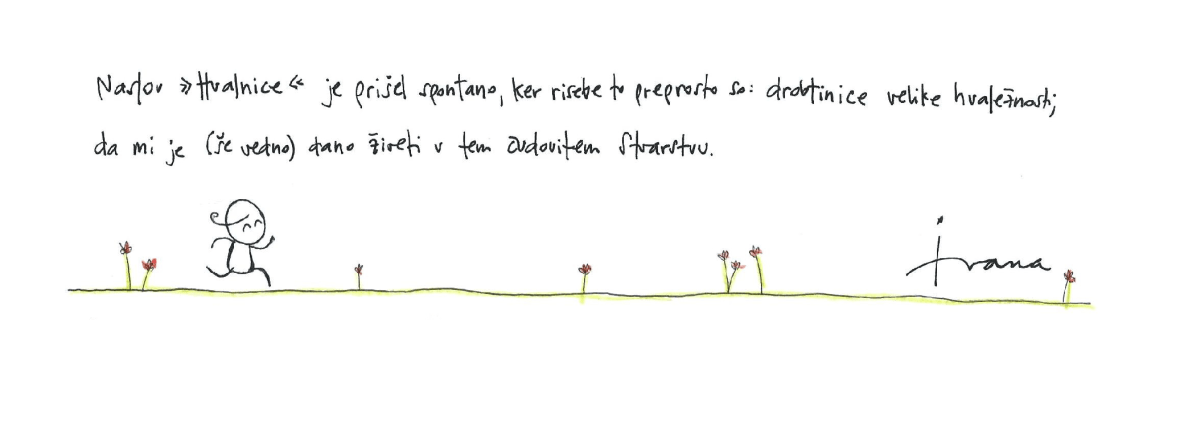 Naslov »Hvalnice« je prišel spontano, ker risbe to preprosto so: drobtinice velike hvaležnosti,
da mi je (še vedno) dano živeti v tem čudovitem Stvarstvu.
Ivana